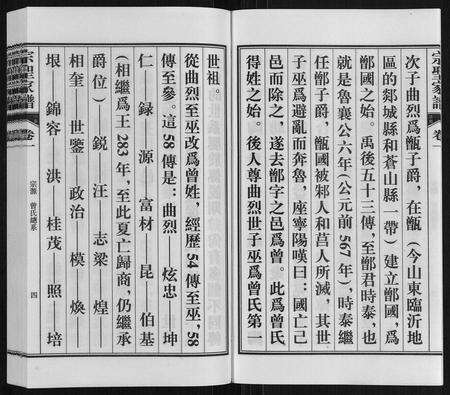 宗聖家譜 卷一
次子曲烈爲甑子爵，在甑（今山東臨沂地
區的郯城縣和蒼山縣一帶）建立鄫國，爲
鄫國之始。禹後五十三傳，至鄫君時泰，也
就是魯襄公六年（公元前567年），時泰繼
任鄫子爵，甑國被邾人和莒人所滅，其世
子巫爲避亂而奔魯，座寧陽嘆曰：國亡已
邑而除之，遂去鄫字之邑爲曾。此爲曾氏
得姓之始。後人尊曲烈世子巫爲曾氏第一
世祖。
從曲烈至巫改爲曾姓，經歷54傳至巫，58
傳至參。這58傳是：曲烈——炫忠—坤
仁—録—源—富材—昆—伯基
（相繼爲王283年，至此夏亡歸商，仍繼承
爵位）—鋭—汪—志梁—煌—
相奎—世鑒—政治—模—煥—
垠—錦容—洪—桂茂—照—培
宗源 曾氏總系
四
宗聖家譜 卷一